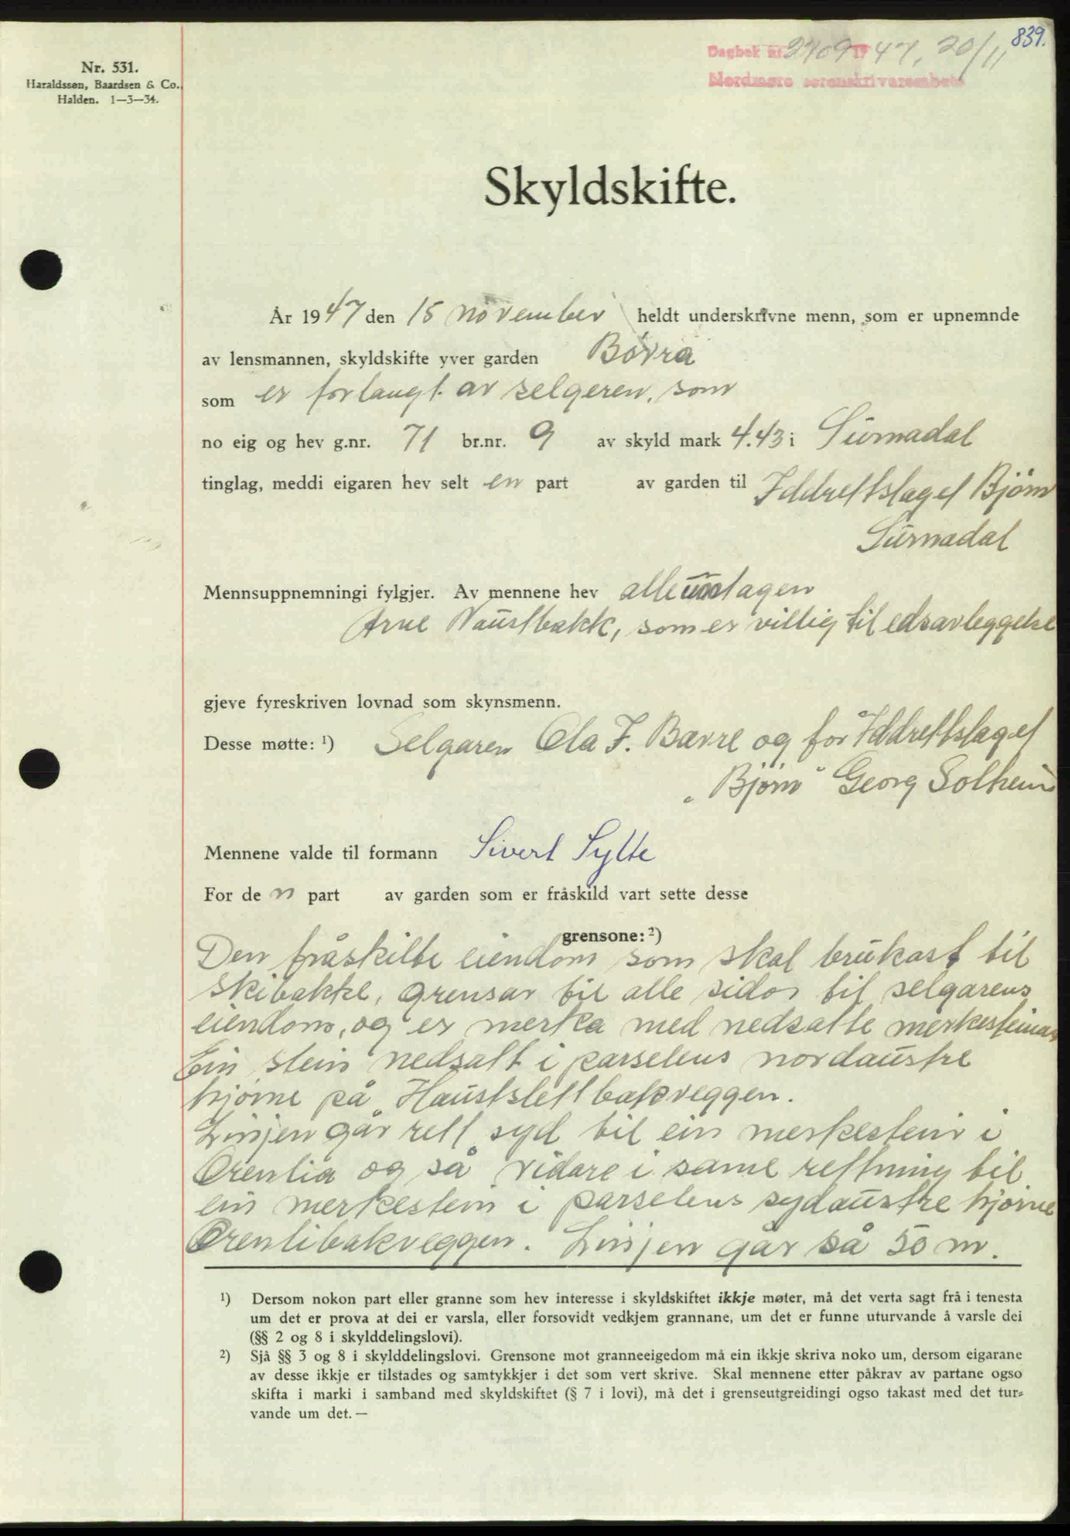 839.
Dagbok nr. 2709 1947, 20/11
Nordmøre sorenskrivarembete
Nr. 531.
Haraldssøn, Baardsen & Co.,
Halden. 1—3—34.
Skyldskifte.
År 1947 den 15 november heldt underskrivne menn, som er upnemnde
av lensmannen, skyldskifte yver garden Bøvra
som er forlangt av selgeren, som
no eig og hev g.nr. 71 br.nr. 9 av skyld mark 4.43 i Surnadal
tinglag, meddi eigaren hev selt en part av garden til Iddrettslaget Bjørn
Surnadal
Mennsuppnemningi fylgjer. Av mennene hev alle untagen
Arne Naustbakk, som er villig til edsavleggelse
gjeve fyreskriven lovnad som skynsmenn.
Desse møtte: ¹) Selgaren Ola F. Bævre og for Iddrettslaget
„Bjørn" Georg Solheim
Mennene valde til formann Sivert Sylte
For de n part av garden som er fråskild vart sette desse
grensone: ²)
Den fråskilte eiendom som skal brukast til
skibakke, grensar til alle sidor til selgarens
eiendom, og er merka med nedsatte merkesteinar
Ein stein nedsatt i parselens nordaustre
hjørne på Haustslettbakveggen.
Linjen går rett syd til ein merkestein i
Orenlia og så vidare i same rettning til
ein merkestein i parselens sydaustre hjørne
Orenlibakveggen. Linjen går så 50 m.
¹) Dersom nokon part eller granne som hev interesse i skyldskiftet ikkje møter, må det verta sagt frå i tenesta
um det er prova at dei er varsla, eller forsovidt vedkjem grannane, um det er funne uturvande å varsle dei
(§§ 2 og 8 i skylddelingslovi).
²) Sjå §§ 3 og 8 i skylddelingslovi. Grensone mot granneeigedom må ein ikkje skriva noko um, dersom eigarane
av desse ikkje er tilstades og samtykkjer i det som vert skrive. Skal mennene etter påkrav av partane ogso
skifta i marki i samband med skyldskiftet (§ 7 i lovi), må det i grenseutgreidingi ogso takast med det tur-
vande um det.—